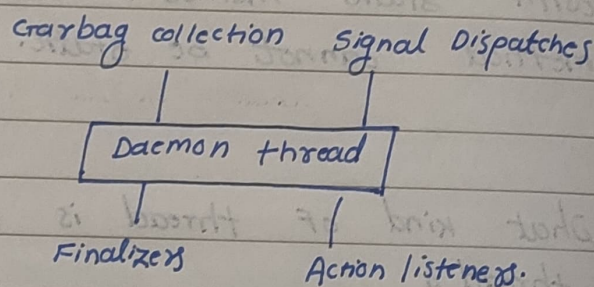 Garbag collection Signal Dispatches
Daemon thread
Finalizers
Action listeners.